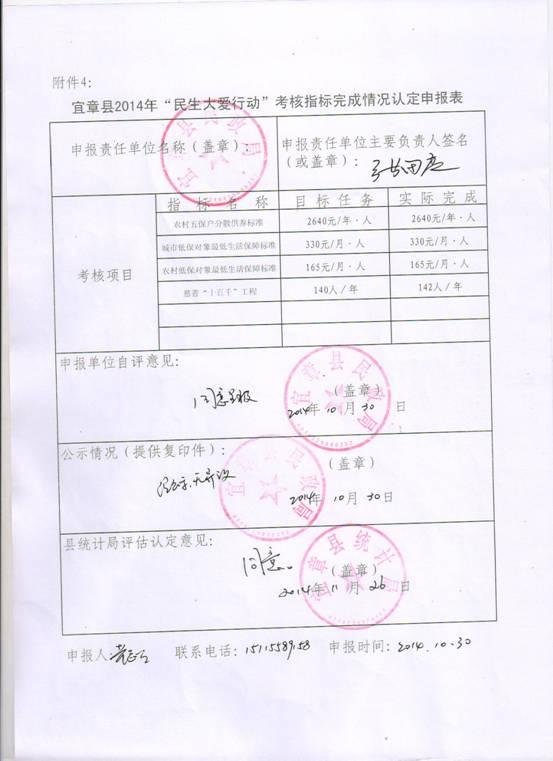 附件4：
宜章县2014年“民生大爱行动”考核指标完成情况认定申报表
申报责任单位名称（盖章）：
宜章县民政局
申报责任单位主要负责人签名
（或盖章）：
考核项目
指标名称 目标任务 实际完成
农村五保户分散供养标准 2640元/年·人 2640元/年·人
城市低保对象最低生活保障标准 330元/月·人 330元/月·人
农村低保对象最低生活保障标准 165元/月·人 165元/月·人
慈善“十百千”工程 140人/年 142人/年
申报单位自评意见：
同意呈报
宜章县民政局
（盖章）
2014年10月30日
公示情况（提供复印件）：
经公示，无异议
宜章县民政局
（盖章）
2014年10月30日
县统计局评估认定意见：
同意。
宜章县统计局
（盖章）
2014年11月26日
申报人： 联系电话：15115589158 申报时间：2014.10.30